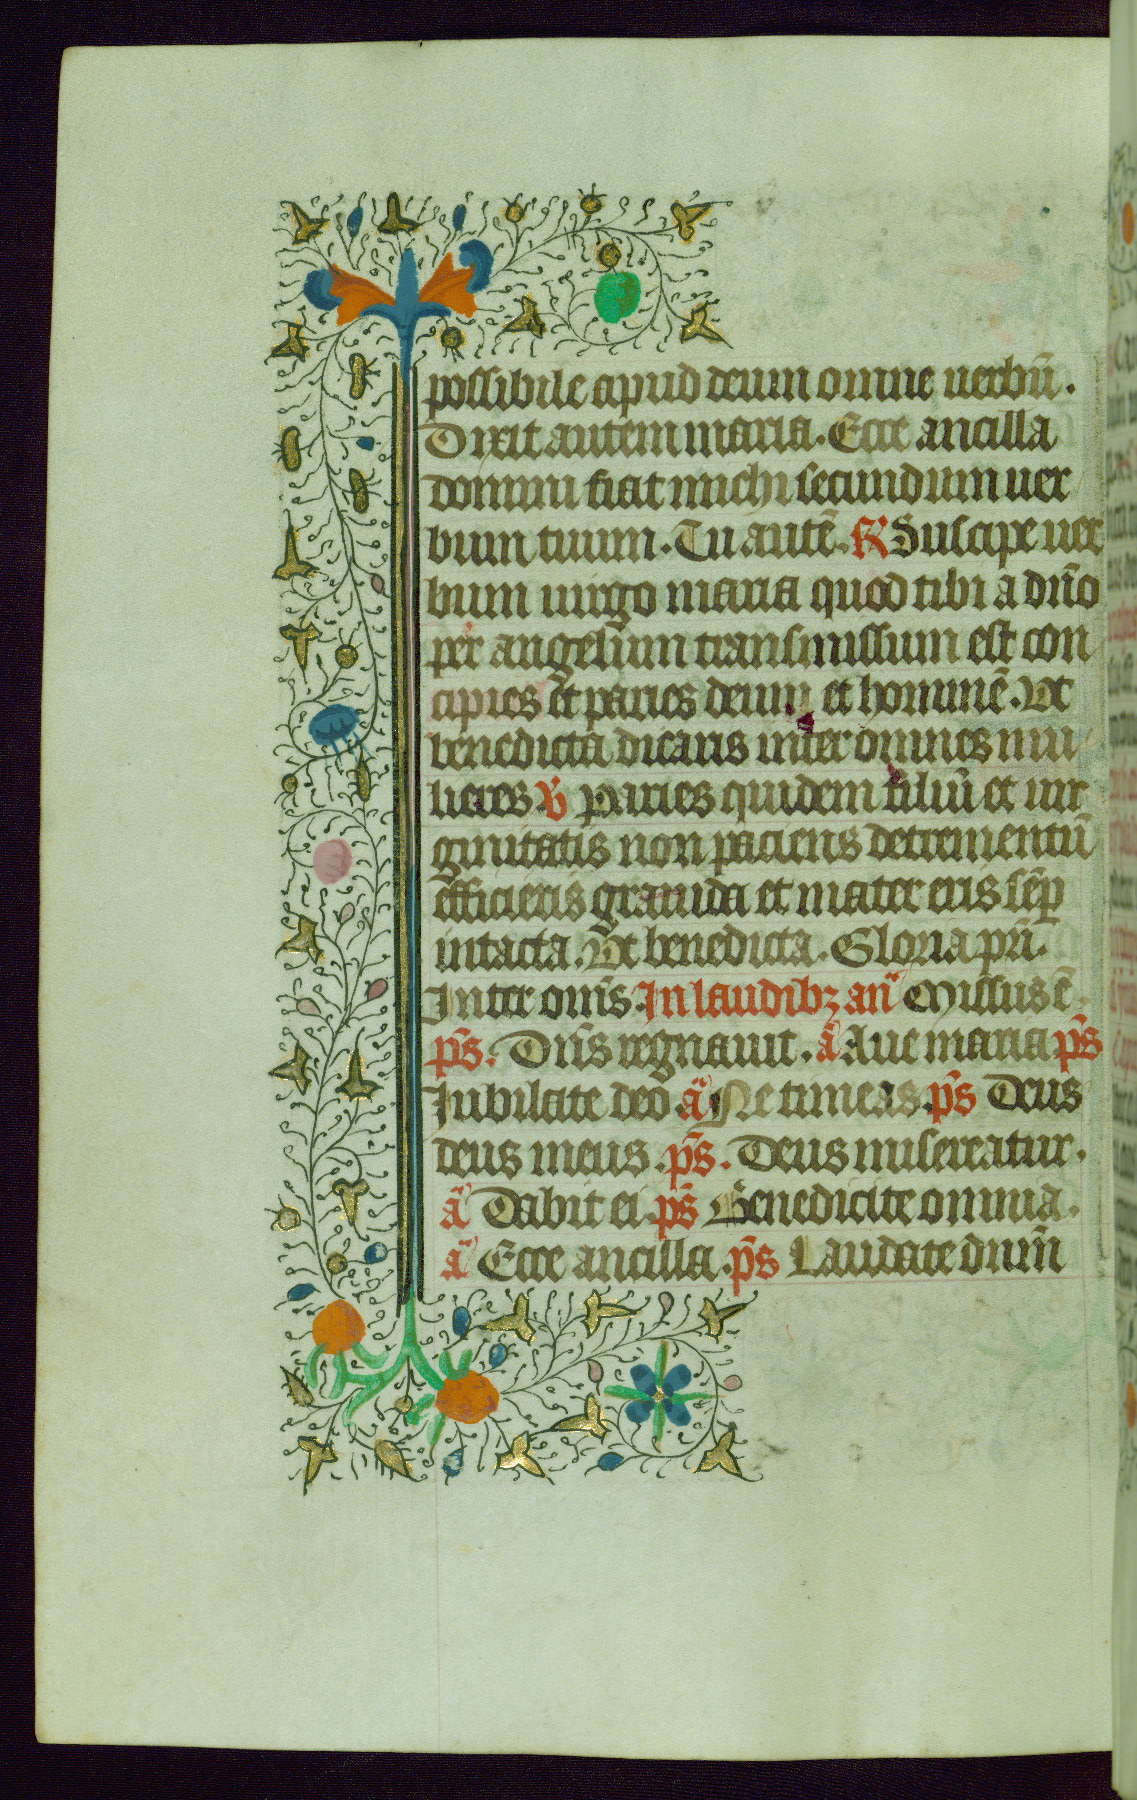 possibile apud deum omne uerbū.
Dixit autem maria. Ecce ancilla
domini fiat michi secundum uer
bum tuum. Tu autē. R Suscipe uer
bum uirgo maria quod tibi a dn̄o
per angelum transmissum est con
cipies et paries deum et hominē. Vt
benedicta dicaris inter omnes mu
lieres V Paries quidem filiū et uir
ginitatis non paciens detrementū
efficieris grauida et mater eris sēp
intacta. Vt benedicta. Gloria pr̄i.
Inter om̄s. In laudibz an̄ Missus ē.
ps̄. Dn̄s regnauit. ā Aue maria ps̄
Iubilate deo ā Ne timeas. ps̄ Deus
deus meus. ps̄. Deus misereatur.
ā Dabit ei ps̄ Benedicite omnia.
ā Ecce ancilla. ps̄ Laudate dnm̄